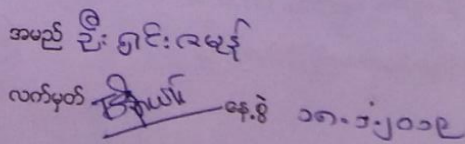 အမည် ဦးရှင်းဇမုန်
လက်မှတ် နေ့စွဲ ၁၈.၁.၂၀၁၉